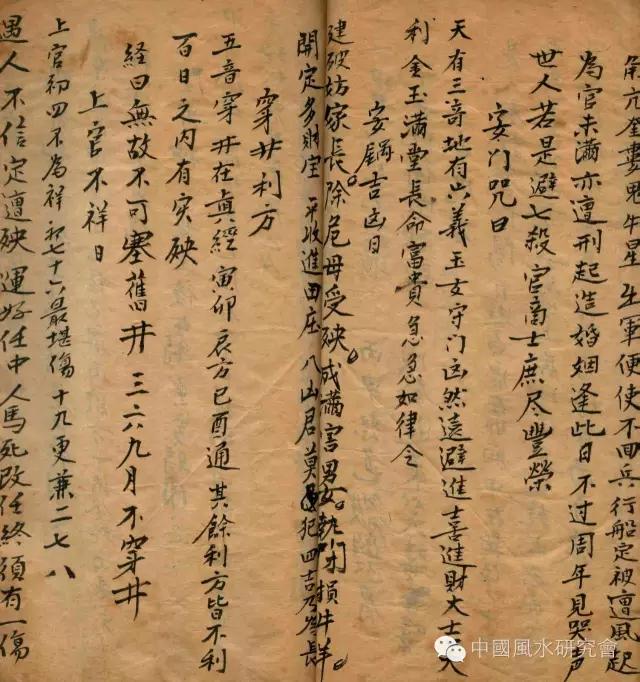 角亢奎婁鬼牛星出軍便使不回兵行船定被遭風起
為官未滿亦遭刑起造婚姻逢此日不过周年見哭声
世人若是避七殺官商士庶尽豐榮
安门咒曰
天有三竒地有六義玉女守门凶然遠避進喜進財大吉大
利金玉滿堂長命富貴急急如律令
安鍋吉凶日
建破妨家長除危母受殃成滿害男女執閉損牛羊
開定多財宝平收進田庄八山君莫犯四吉長
穿井利方
五音穿井在真經寅卯辰方巳酉通其餘利方皆不利
百日之内有灾殃
経曰無故不可塞舊井三六九月不穿井
上官不祥日
上官初四不為祥初七十六最堪傷十九更兼二七八
遇人不信定遭殃運好任中人馬死改任終須有一傷
中國風水研究會